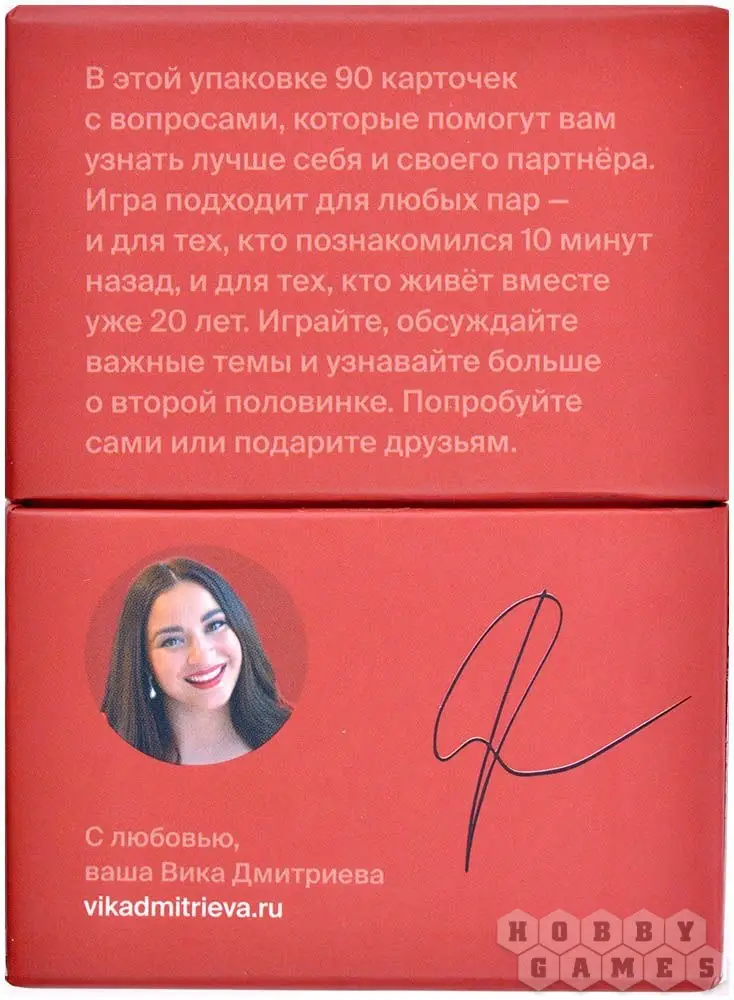 В этой упаковке 90 карточек
с вопросами, которые помогут вам
узнать лучше себя и своего партнёра.
Игра подходит для любых пар —
и для тех, кто познакомился 10 минут
назад, и для тех, кто живёт вместе
уже 20 лет. Играйте, обсуждайте
важные темы и узнавайте больше
о второй половинке. Попробуйте
сами или подарите друзьям.
С любовью,
ваша Вика Дмитриева
vikadmitrieva.ru
HOBBY
GAMES